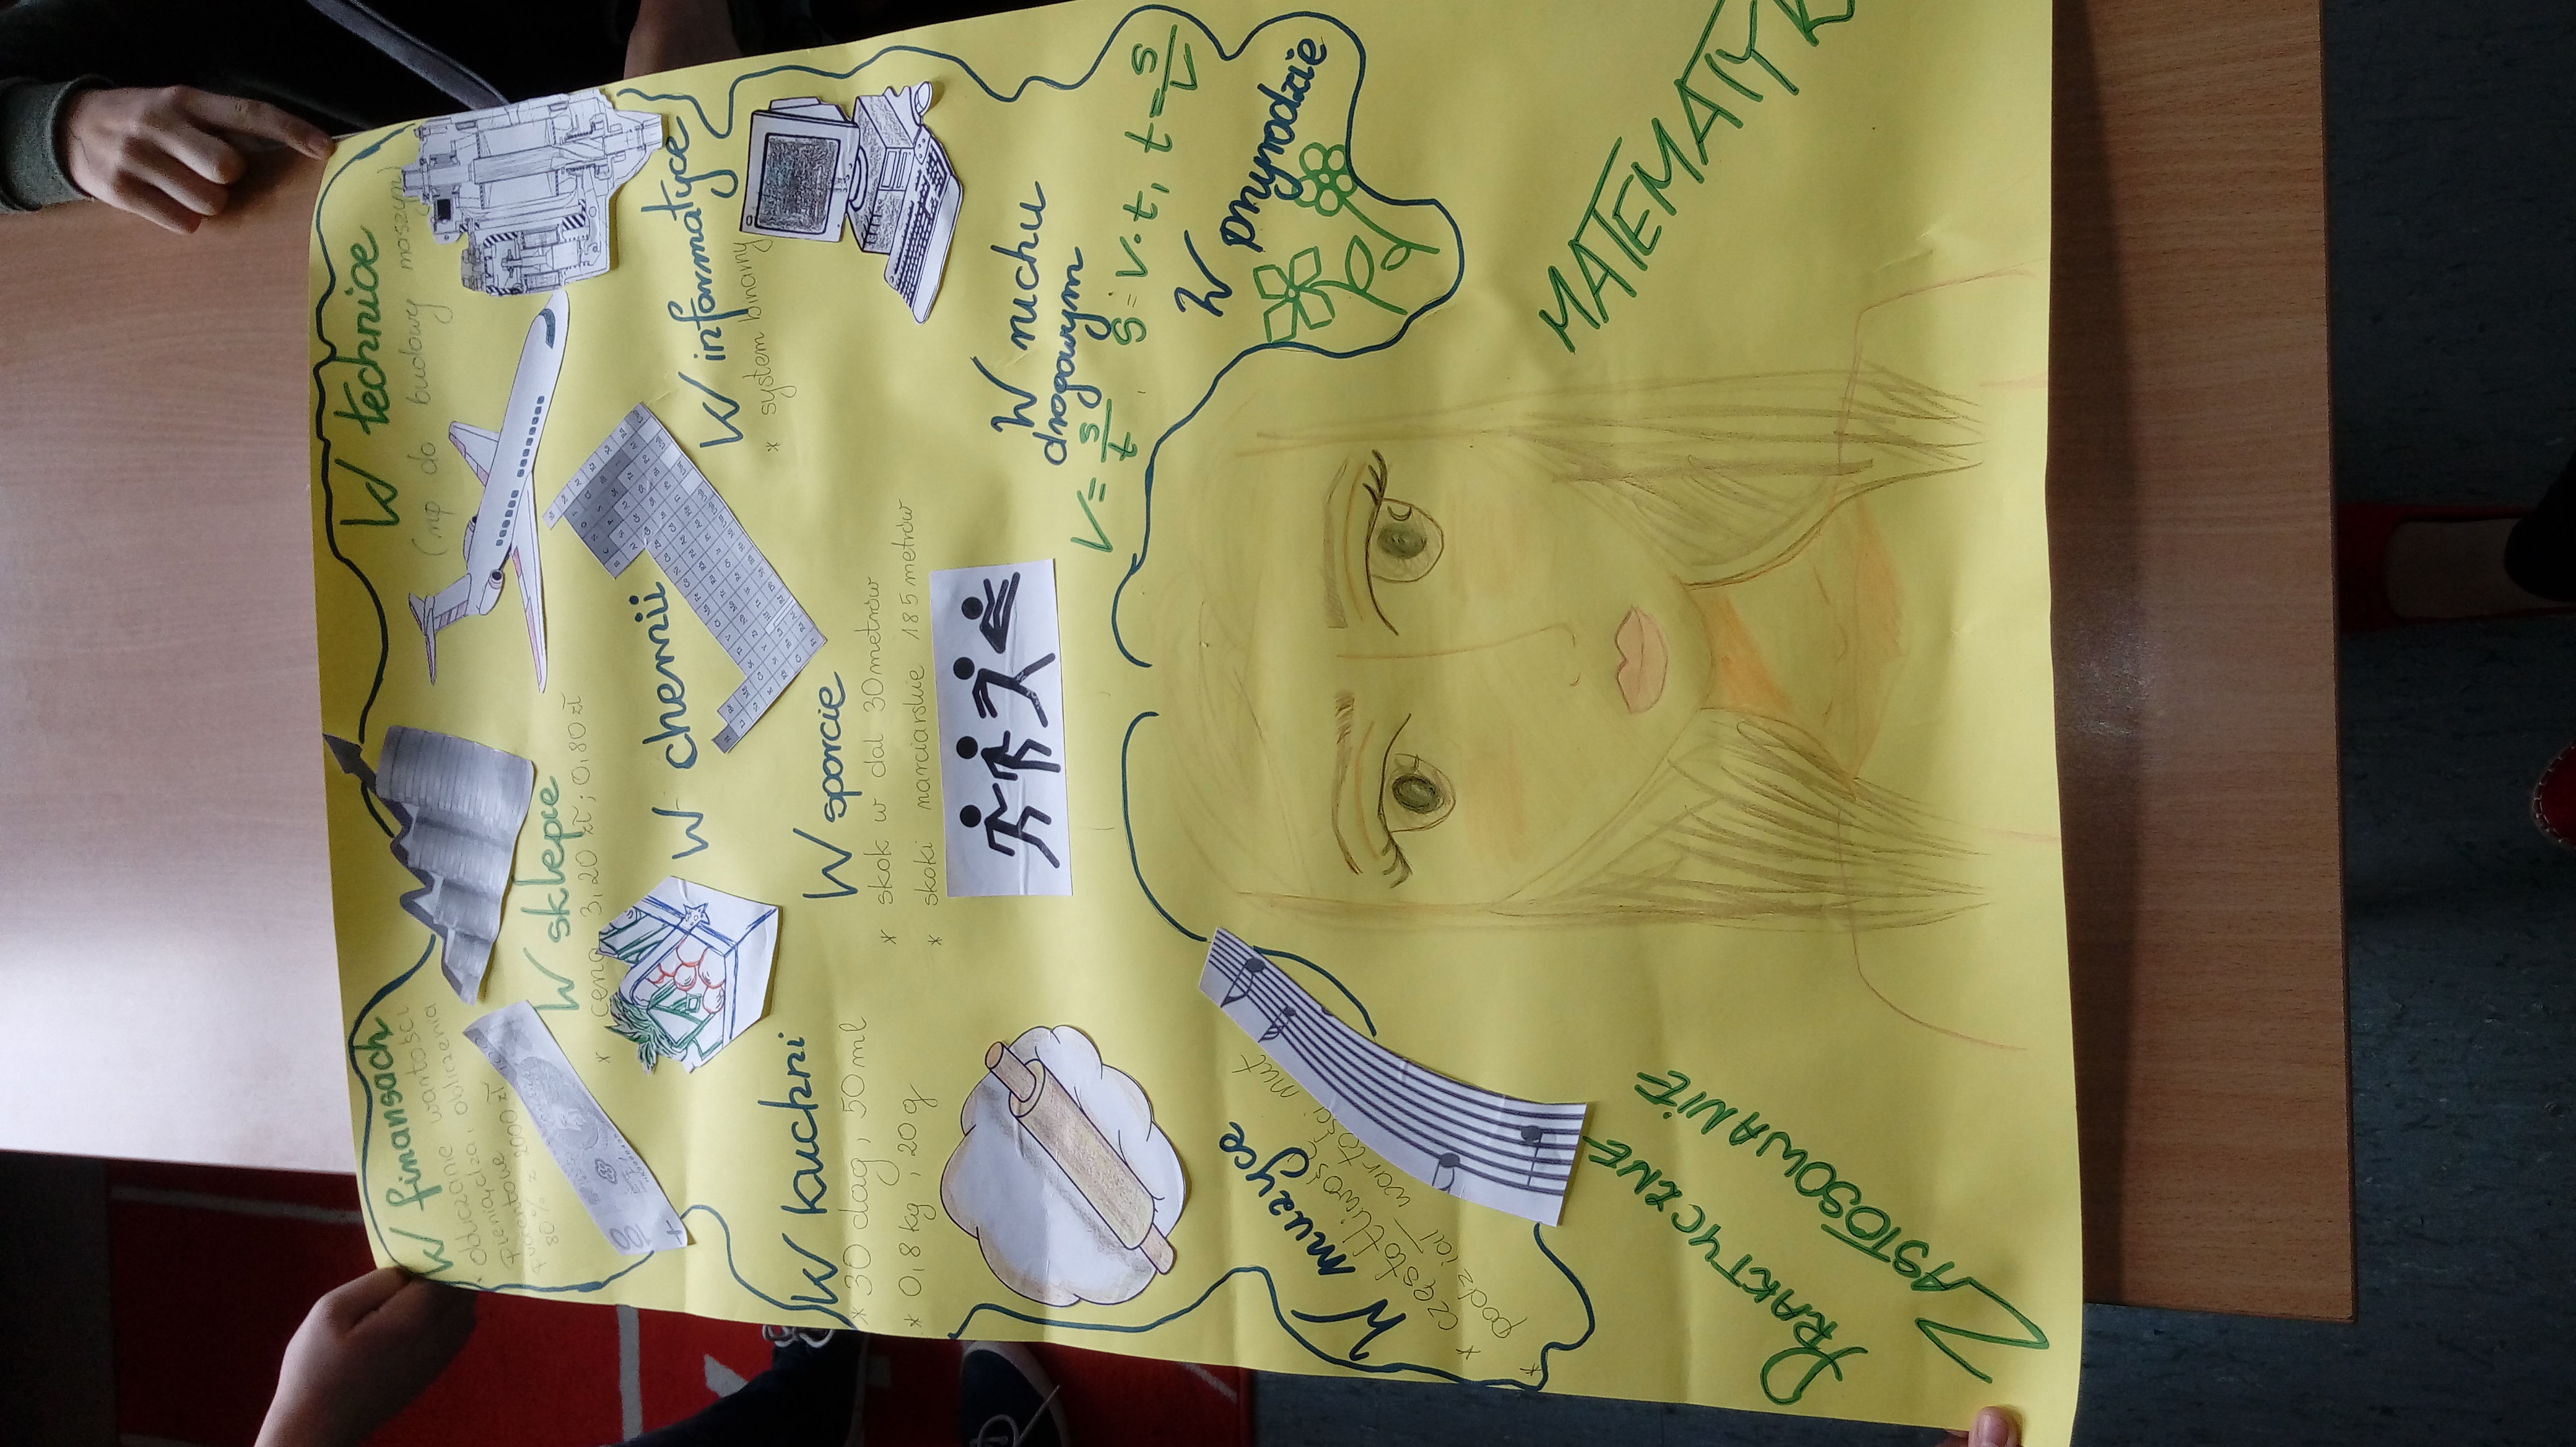 W finansach
* obliczanie wartości
pieniądza, obliczenia
procentowe
80% z 2000 zł
100
W technice
(np do budowy maszyn)
W sklepie
* cena 3,20 zł; 0,80 zł
W chemii
W informatyce
* system binarny
W kuchni
* 30 dag, 50 ml
* 0,8 kg, 20 g
W sporcie
* skok w dal 30 metrów
* skoki narciarskie 185 metrów
W ruchu
drogowym
V = s/t, S = V·t, t = s/V
W przyrodzie
W muzyce
* częstotliwość
* podział wartości nut
PRAKTYCZNE
ZASTOSOWANIE
MATEMATYK